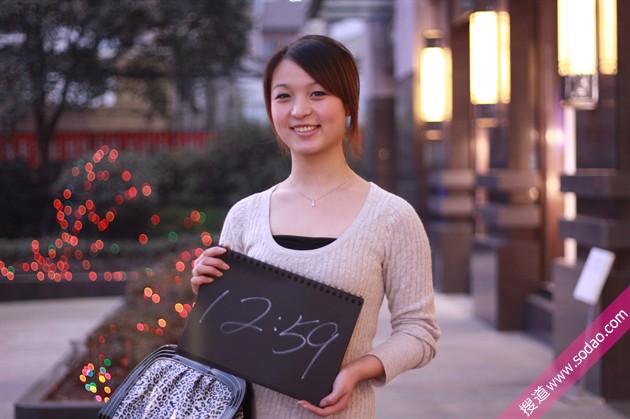 12:59
搜道 www.sodao.com